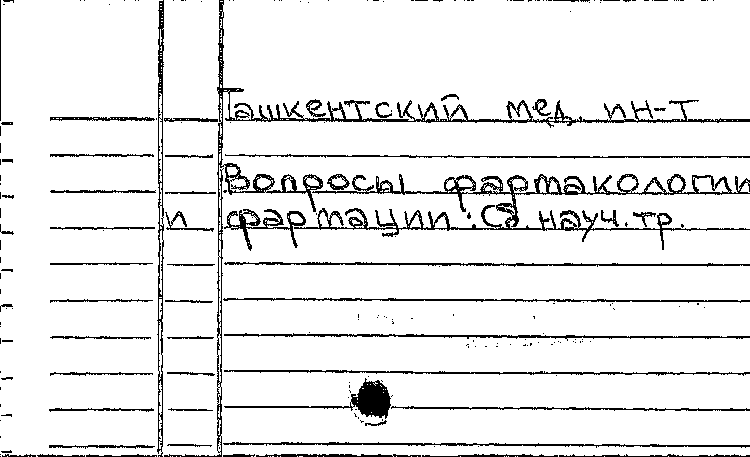 Ташкентский мед. ин-т
Вопросы фармакологии
и фармации : Сб. науч. тр.